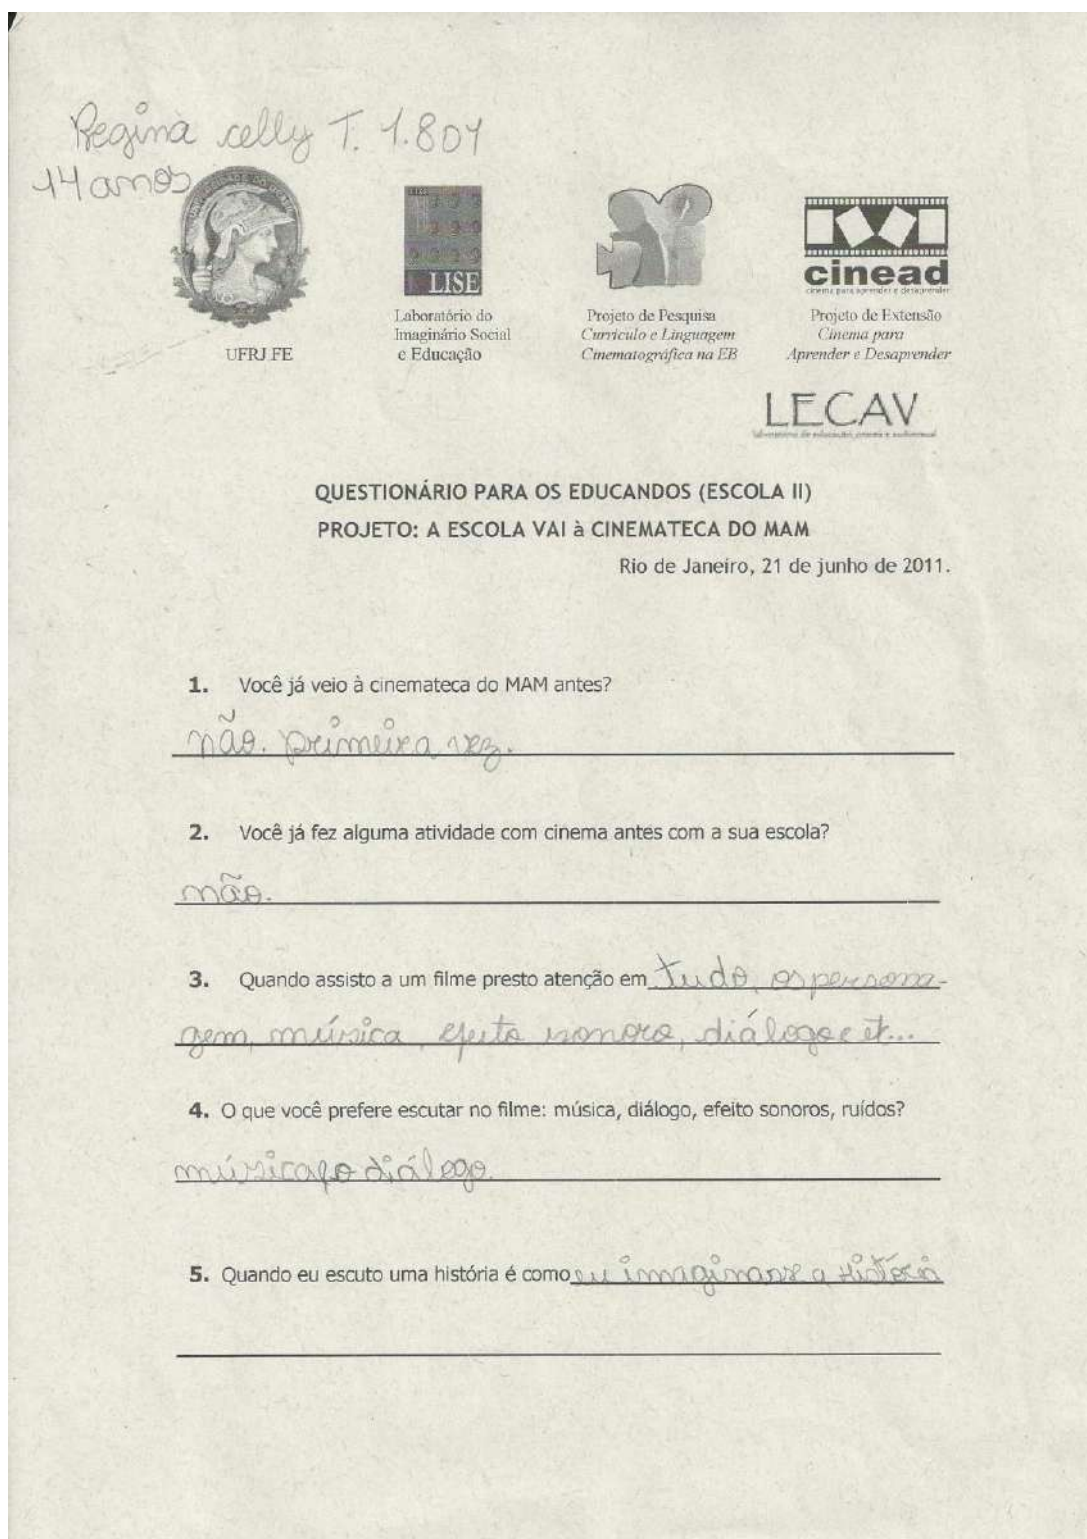 Regina celly T. 1.801
14 anos
LISE
cinead
cinema para aprender e desaprender
UFRJ FE
Laboratório do
Imaginário Social
e Educação
Projeto de Pesquisa
Currículo e Linguagem
Cinematográfica na EB
Projeto de Extensão
Cinema para
Aprender e Desaprender
LECAV
QUESTIONÁRIO PARA OS EDUCANDOS (ESCOLA II)
PROJETO: A ESCOLA VAI à CINEMATECA DO MAM
Rio de Janeiro, 21 de junho de 2011.
1. Você já veio à cinemateca do MAM antes?
não. primeira vez.
2. Você já fez alguma atividade com cinema antes com a sua escola?
não.
3. Quando assisto a um filme presto atenção em tudo, os persona-
gem, música, efeito sonoro, diálogo e et...
4. O que você prefere escutar no filme: música, diálogo, efeito sonoros, ruídos?
música diálogo.
5. Quando eu escuto uma história é como eu imaginasse a